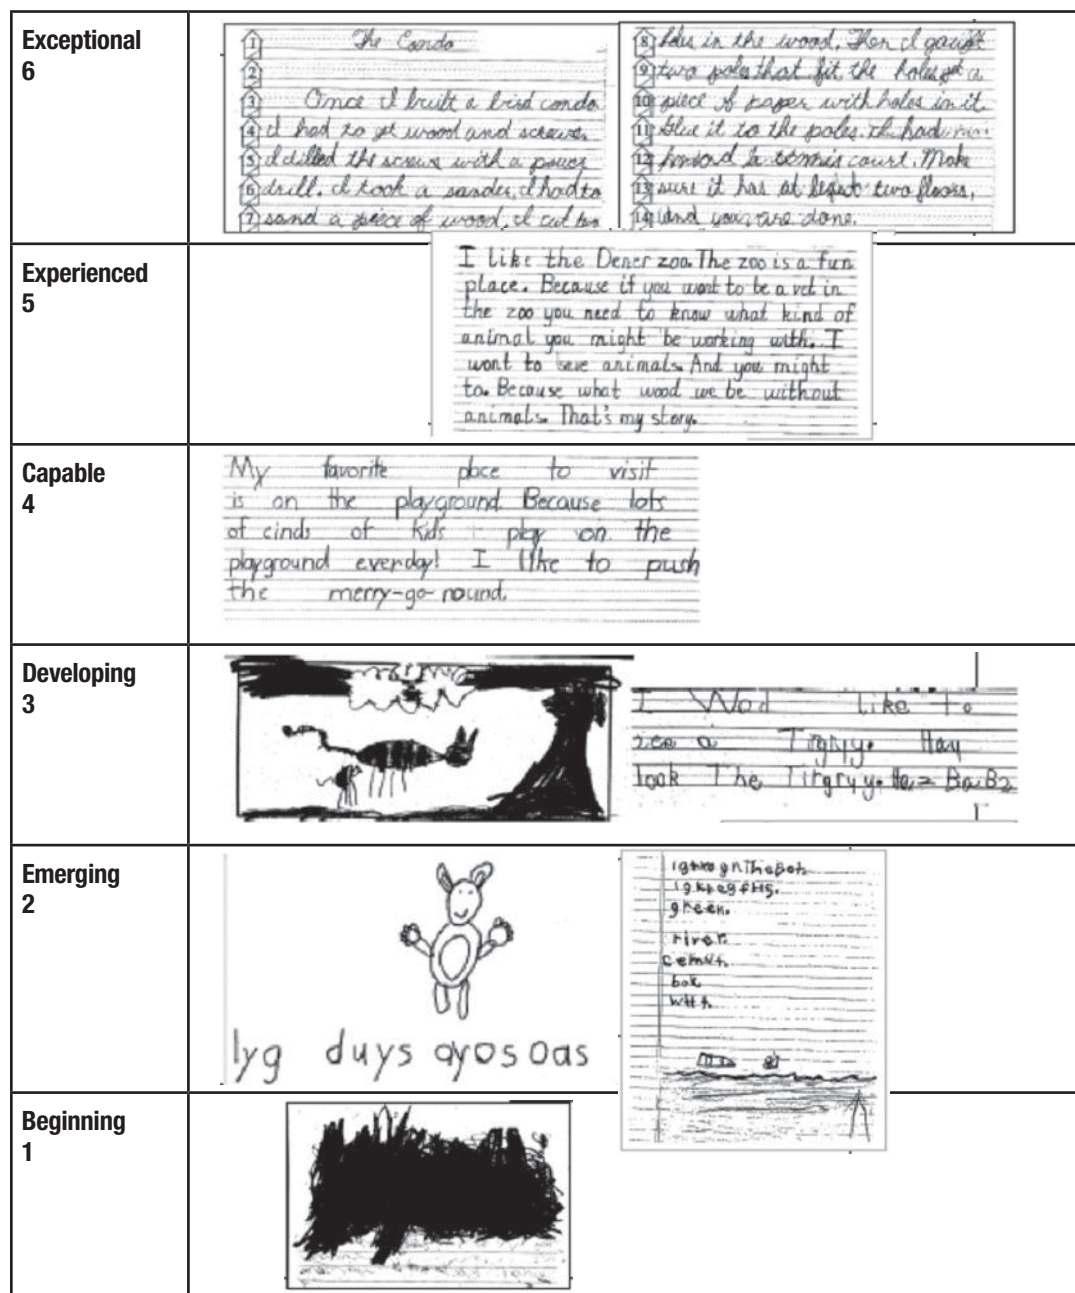 Exceptional
6
1 The Condo
2
3 Once I built a bird condo
4 I had to get wood and screws.
5 I dilled the screws with a power
6 drill. I took a sander, I had to
7 sand a piece of wood, I cut two
8 holes in the wood. Then I gaught
9 two poles that fit the holes get a
10 piece of paper with holes in it.
11 Glue it to the poles. I had
12 a tennis court. Make
13 sure it has at legust two floors,
14 and you are done.
Experienced
5
I like the Dener zoo. The zoo is a fun
place. Because if you want to be a vet in
the zoo you need to know what kind of
animal you might be working with. I
want to save animals. And you might
to. Because what wood we be without
animals. That's my story.
Capable
4
My favorite place to visit
is on the playground Because lots
of cinds of kids play on the
playground everday! I like to push
the merry-go-round.
Developing
3
I Wod like to
see a Tirgryy. Hay
look The Tirgryy.
Emerging
2
lyg duys oyos oas
green.
river.
cemut.
bok
Beginning
1